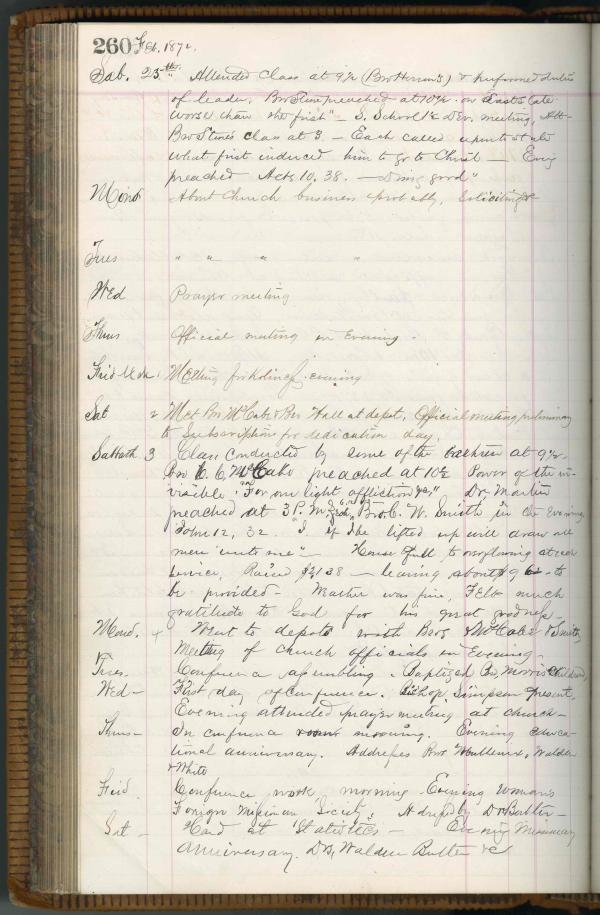 260 Feb. 1872.
Sab. 25th. Attended Class at 9½ (Bro Herron's) & performed duties
of leader. Bro Stine preached at 10½ on "Last State
worse than the first" – S. School 1½ & Dev. meeting, Att-
Bro Stine's class at 3 – Each called upon to state
what first induced him to go to Christ – Eve'g
preached Acts 10, 38. – "doing good"
Mond About Church business probably, Soliciting &c
Tues " " " "
Wed Prayer meeting
Thurs Official meeting in Evening.
Frid March 1 Meeting for holiness evening
Sat 2 Met Bro McCabe & Bro Hall at depot. Official meeting preliminary
to Subscriptions for dedication day.
Sabbath 3 Class conducted by some of the brethren at 9½
Bro C. C. McCabe preached at 10½ Power of the in-
visible. "For our light affliction &c," Dr. Martin
preached at 3 P.M. Bro C. W. Smith in the Evening
John 12, 32. "I, if I be lifted up will draw all
men unto me" – House full to overflowing at each
service. Raised – leaving about to
be provided – Weather was fine, Felt much
gratitude to God for his great goodness –
Mond. 4 Went to depots with Bros McCabe & Smith,
Meeting of Church officials in Evening –
Tues. Conference assembling. Baptized Bro Morris Children
Wed – First day of Conference. Bishop Simpson present,
Evening attended prayer meeting at church –
Thurs – In conference morning. Evening educa-
tional anniversary. Addresses Bros Walden
& White
Frid. Conference work morning Evening Woman's
Foreign Mission Society. Address by Dr Butler –
Sat – Hard at "Statistics – Evening Missionary
Anniversary. Drs, Walden Butler &c